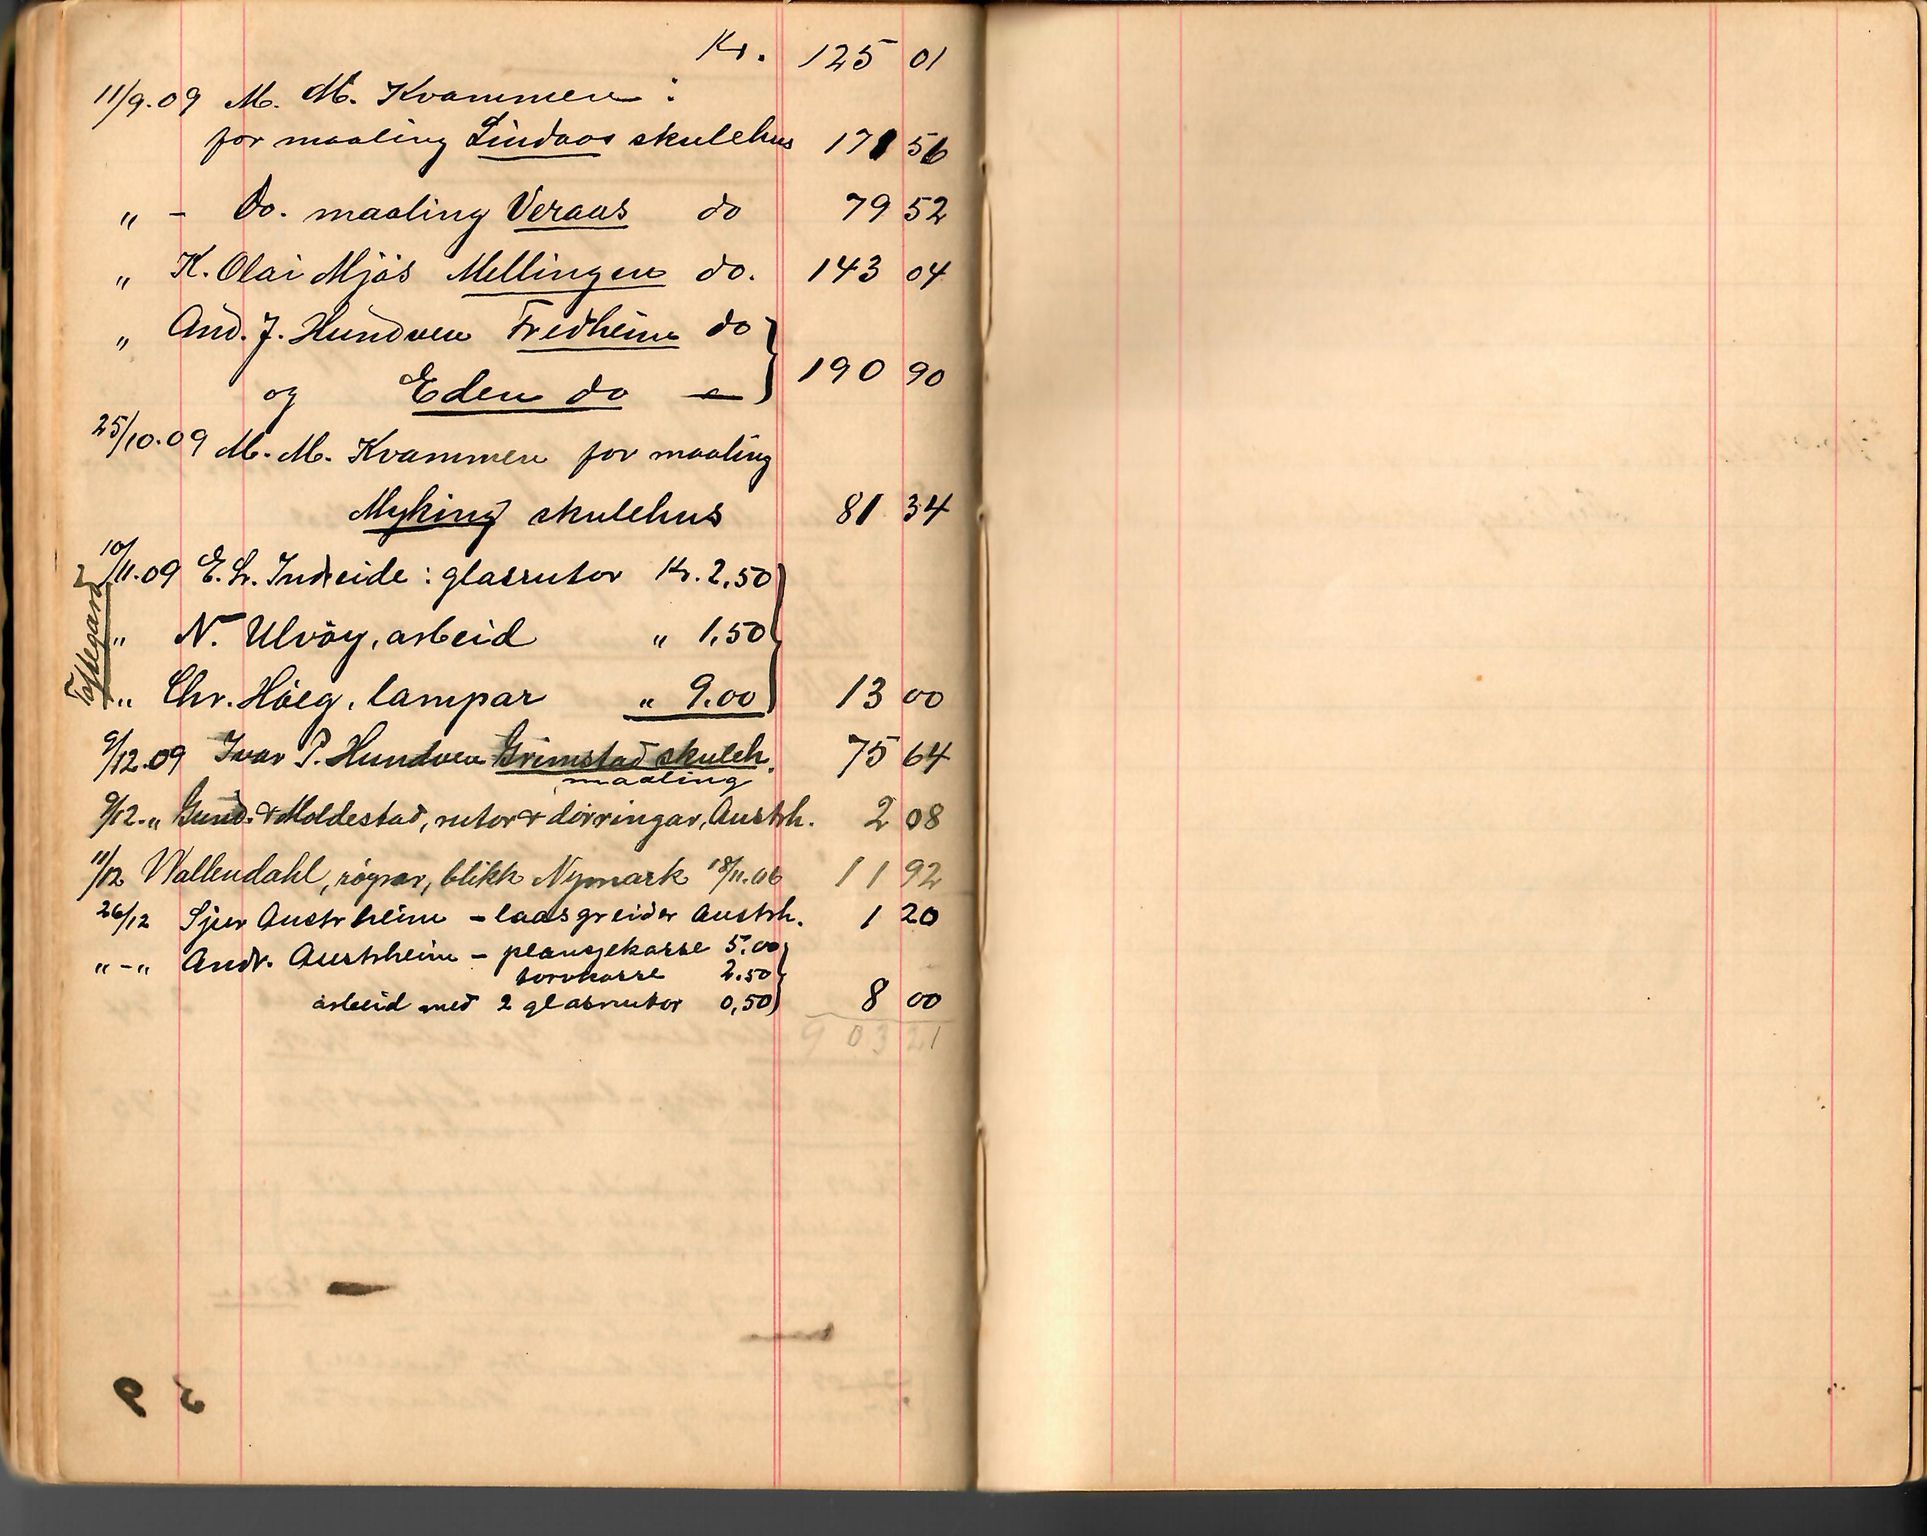 Kr. 125 01
11/9.09 M. M. Kvammen :
for maaling Lindaas skulehus 171 56
" - Do. maaling Veraas do 79 52
" K. Olai Mjös Mellingen do. 143 04
" And. J. Hundven Fredheim do
og Eden do 190 90
25/10.09 M. M. Kvammen for maaling
Myking skulehus 81 34
10/11.09 E. L. Indreide : glasrutor Kr. 2,50
" N. Ulvöy, arbeid " 1,50
" Chr. Höeg, lampar " 9.00 13 00
9/12.09 Ivar P. Hundven Grimstad skuleh. 75 64
maaling
9/12. " Gund. & Moldestad, rutor & dörringar, Austrh. 2 08
11/12 Wallendahl, rögrör, blikk Nymark 18/11.06 11 92
26/12 Sjur Austrheim - laasgreider Austrh. 1 20
" - " Andr. Austrheim - plansjekasse 5.00
torvkasse 2.50
arbeid med 2 glasrutor 0,50 8 00
903 21